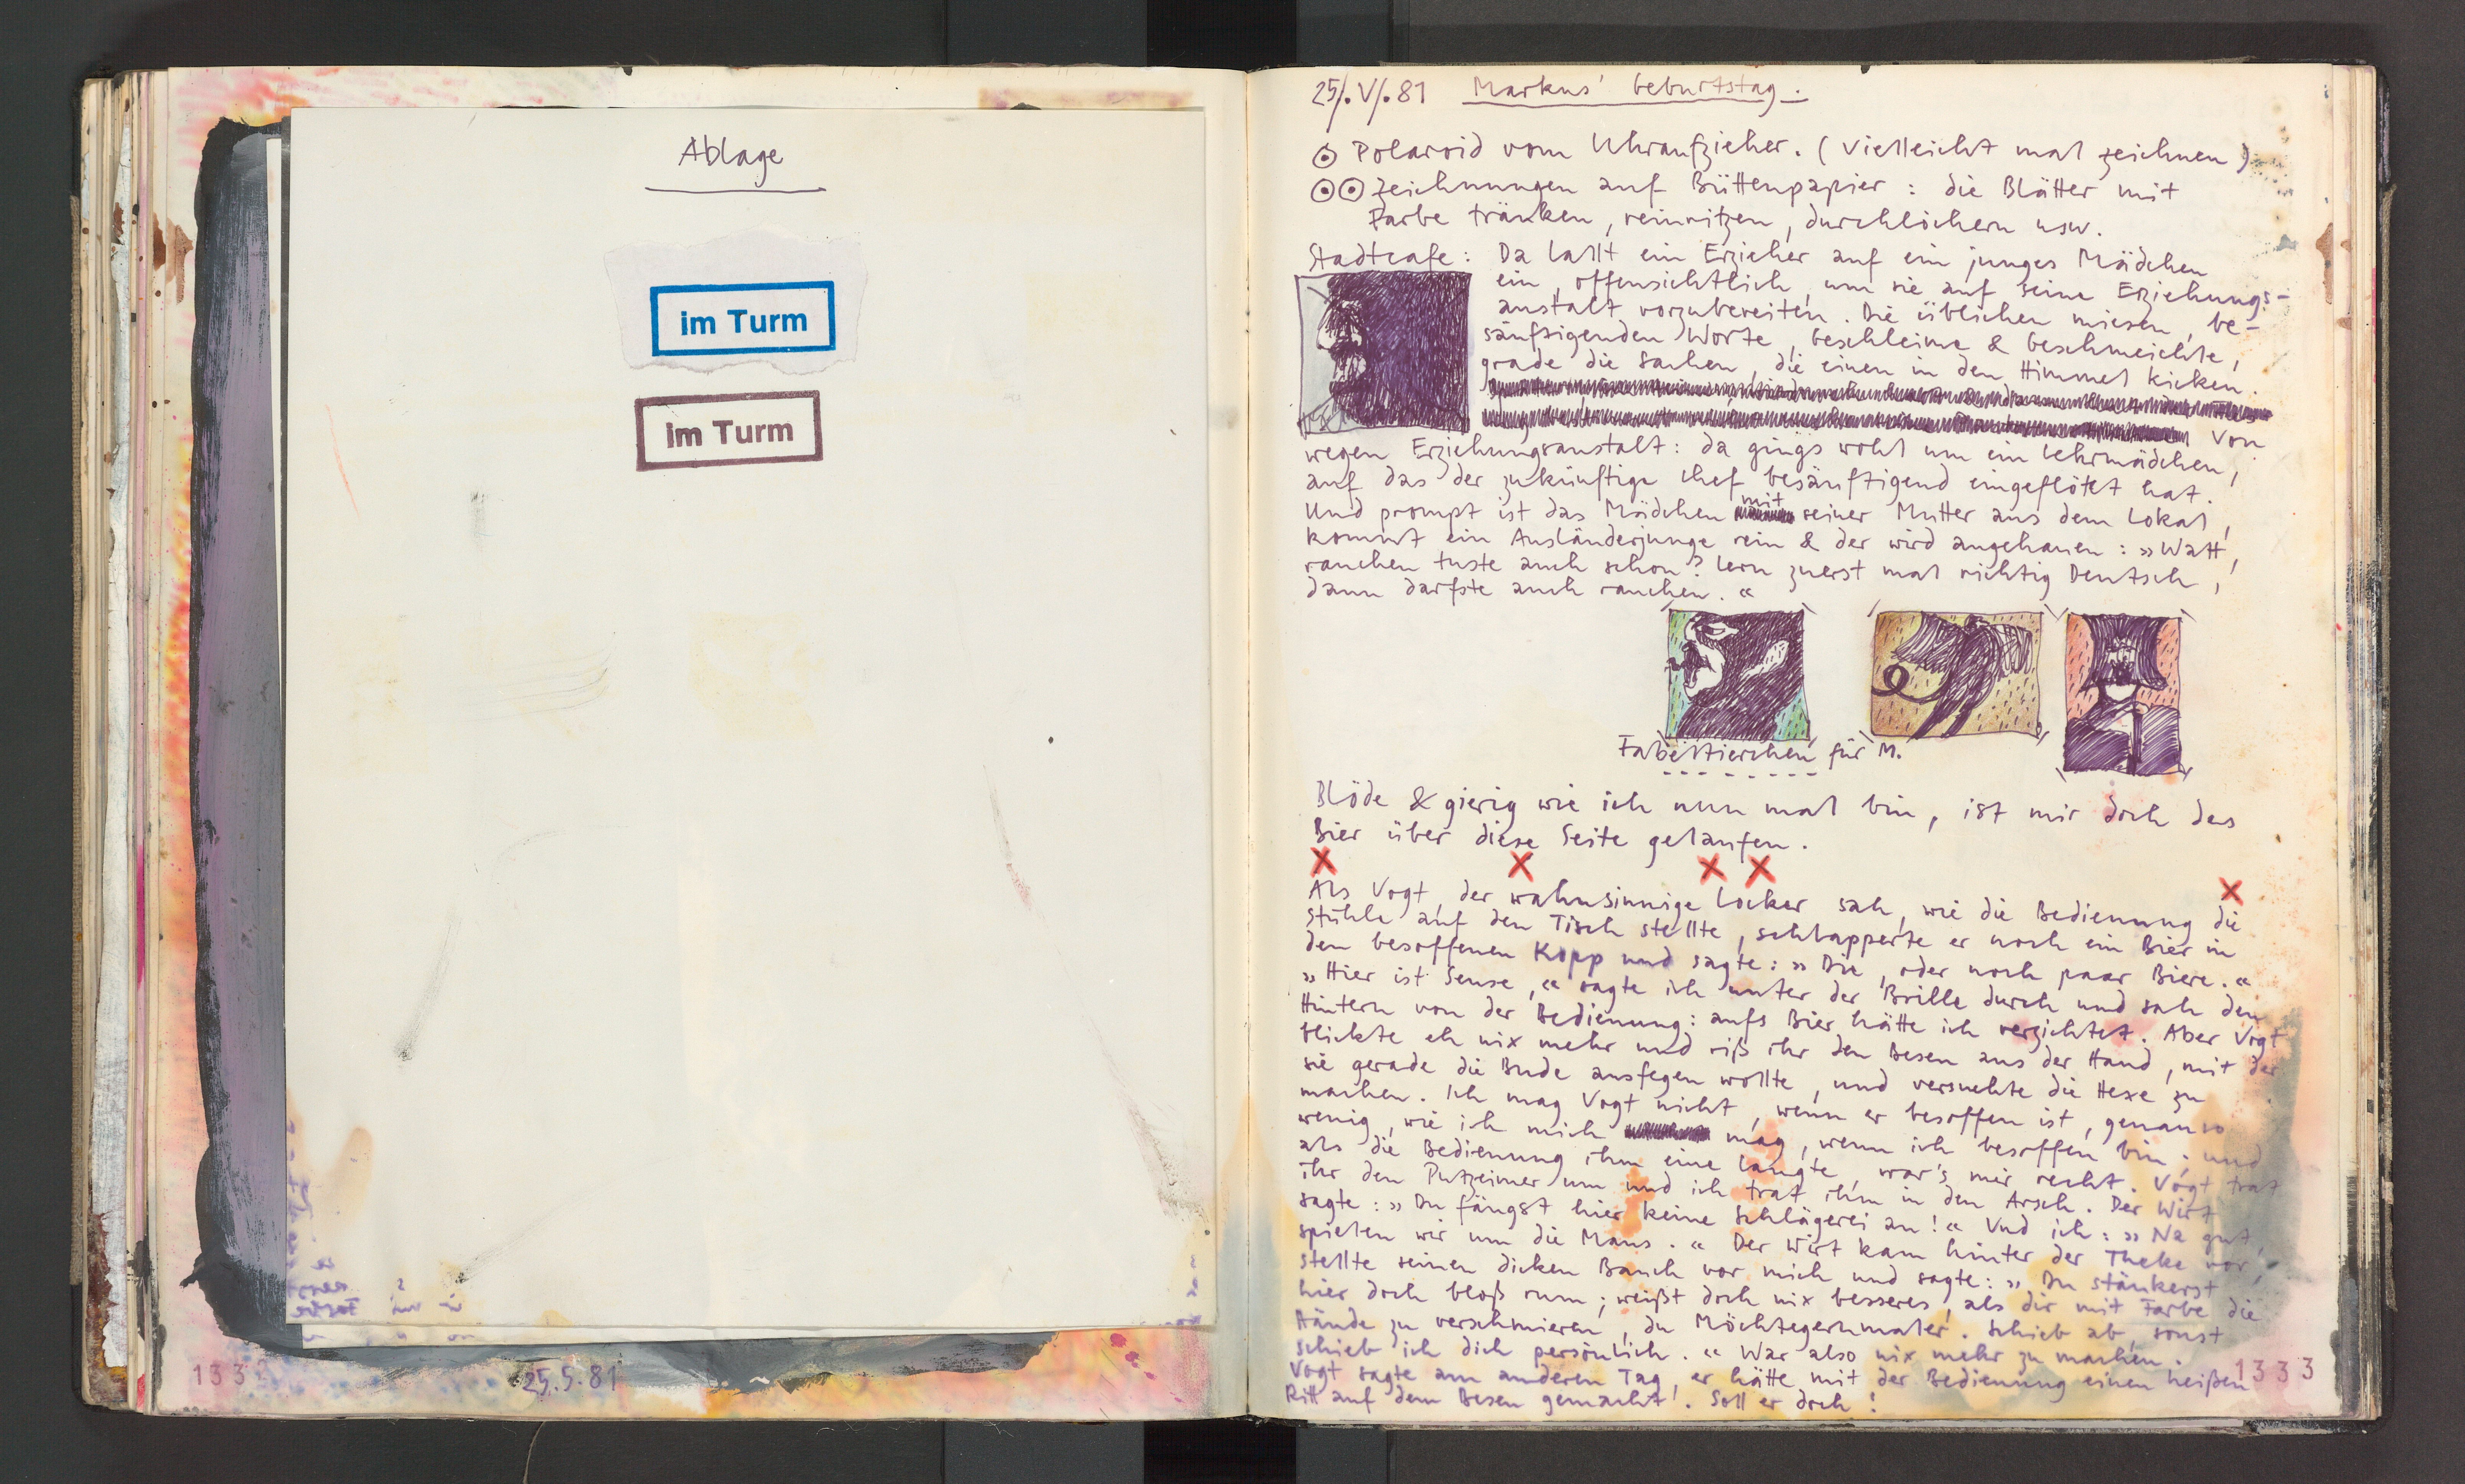 Ablage
im Turm
im Turm
133
25.5.81
25/.V/.81 Markus' Geburtstag.
Polaroid vom Uhraufzieher. (vielleicht mal zeichnen)
Zeichnungen auf Büttenpapier: die Blätter mit
Farbe tränken, reinritzen, durchlöchern usw.
Stadtcafe: Da lallt ein Erzieher auf ein junges Mädchen
ein, offensichtlich, um sie auf seine Erziehungs-
anstalt vorzubereiten. Die üblichen miesen, be-
sänftigenden Worte, beschleime & beschmeichle,
grade die Sachen, die einen in den Himmel kicken.
Von
wegen Erziehungsanstalt: da gings wohl um ein Lehrmädchen,
auf das der zukünftige Chef besänftigend eingeflötet hat.
Und prompt ist das Mädchen mit seiner Mutter aus dem Lokal,
kommt ein Ausländerjunge rein & der wird angehauen: »Watt,
rauchen tuste auch schon? Lern zuerst mal richtig Deutsch,
dann darfste auch rauchen.«
Fabeltierchen für M.
Blöde & gierig wie ich nun mal bin, ist mir doch das
Bier über diese Seite gelaufen.
Als Vogt, der wahnsinnige Locker sah, wie die Bedienung die
Stühle auf den Tisch stellte, schlapperte er noch ein Bier in
den besoffenen Kopp und sagte: »Die, oder noch paar Biere.«
»Hier ist Sense,« sagte ich unter der Brille durch und sah den
Hintern von der Bedienung: aufs Bier hätte ich verzichtet. Aber Vogt
blickte eh nix mehr und riß ihr den Besen aus der Hand, mit der
sie gerade die Bude ausfegen wollte, und versuchte die Hexe zu
machen. Ich mag Vogt nicht, wenn er besoffen ist, genauso
wenig, wie ich mich mag, wenn ich besoffen bin; und
als die Bedienung ihm eine langte, war's mir recht. Vogt trat
ihr den Putzeimer um und ich trat ihm in den Arsch. Der Wirt
sagte: »Du fängst hier keine Schlägerei an!« Und ich: »Na gut,
spielen wir um die Maus.« Der Wirt kam hinter der Theke vor,
stellte seinen dicken Bauch vor mich und sagte: »Du stänkerst
hier doch bloß rum; weißt doch nix besseres, als dir mit Farbe die
Hände zu verschmieren, du Möchtegernmaler. Schieb ab, sonst
schieb ich dich persönlich.« War also nix mehr zu machen.
Vogt sagte am anderen Tag, er hätte mit der Bedienung einen heißen
Ritt auf dem Besen gemacht. Soll er doch!
1333